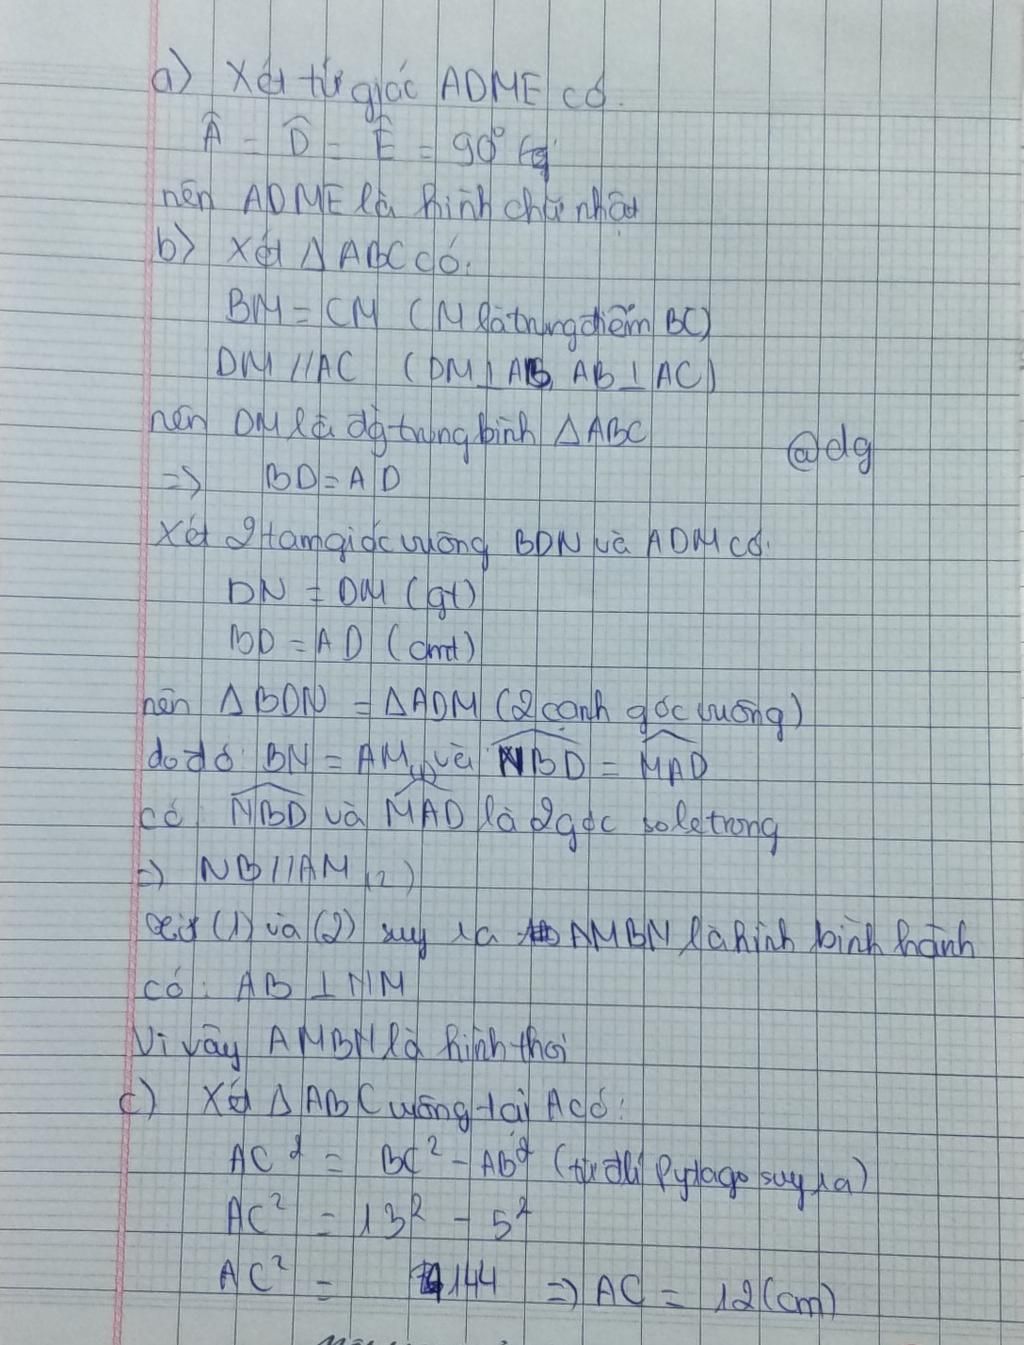 a) Xét tứ giác ADME có
Â = D̂ = Ê = 90°
nên ADME là hình chữ nhật
b) Xét ΔABC có:
BM = CM (M là trung điểm BC)
DM // AC (DM ⊥ AB, AB ⊥ AC)
nên DM là đg trung bình ΔABC
@dg
=> BD = AD
Xét 2 tam giác vuông BDN và ADM có:
DN = DM (gt)
BD = AD (cmt)
nên ΔBDN = ΔADM (2 cạnh góc vuông)
do đó BN = AM (1) và NBD = MAD
có NBD và MAD là 2 góc so le trong
=> NB // AM (2)
từ (1) và (2) suy ra AMBN là hình bình hành
có: AB ⊥ NM
Vì vậy AMBN là hình thoi
c) Xét ΔABC vuông tại A có:
AC² = BC² - AB² (từ đlí Pytago suy ra)
AC² = 13² - 5²
AC² = 144 => AC = 12 (cm)